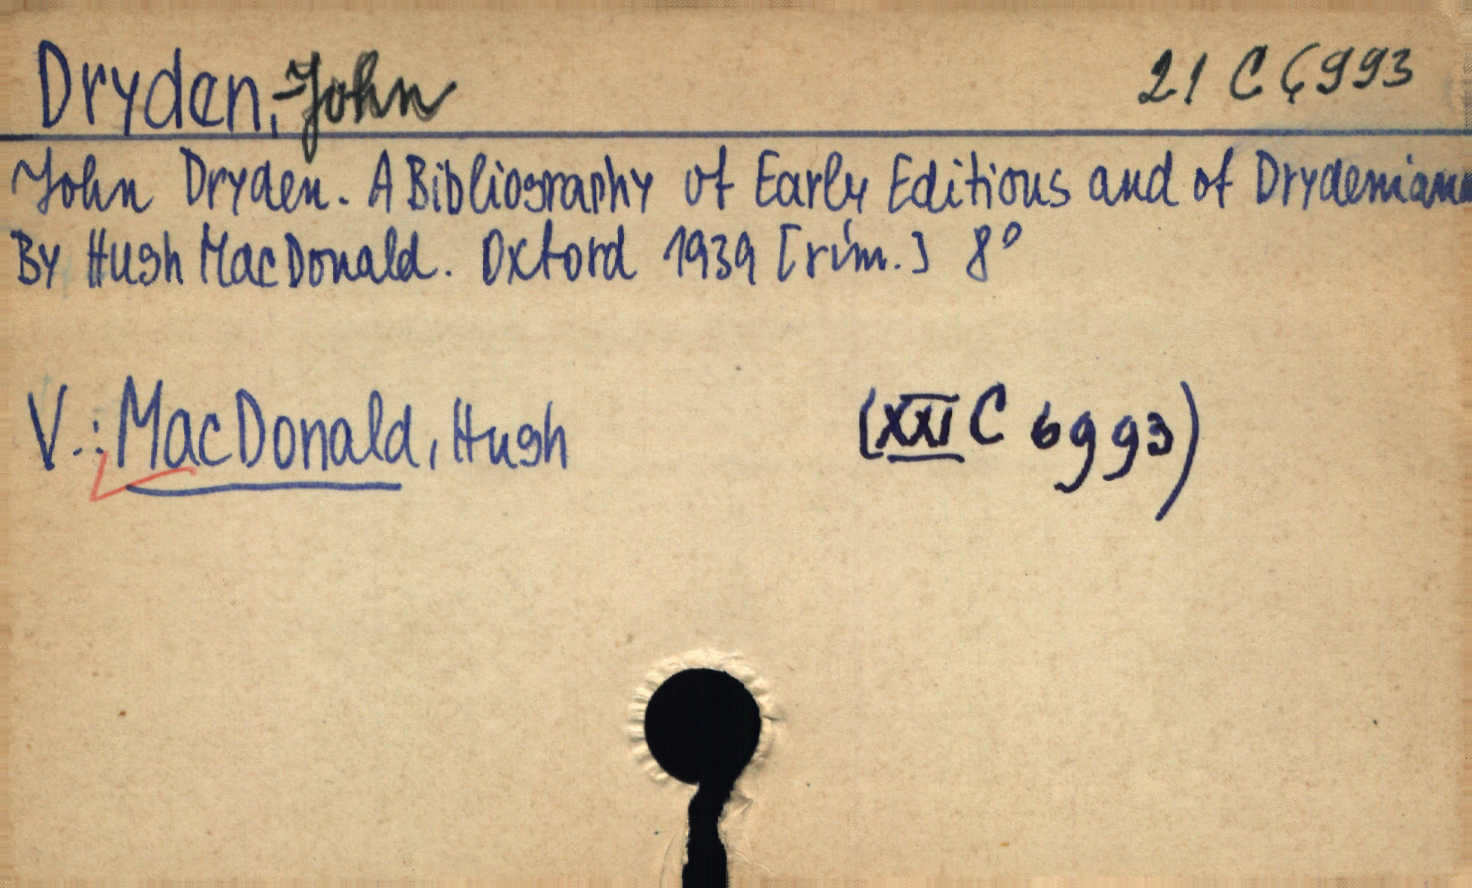 Dryden, John 21 C 6993
John Dryden. A Bibliography of Early Editions and of Drydeniana
By Hugh MacDonald. Oxford 1939 [rim.] 8°
V.: MacDonald, Hugh (XXI C 6993)